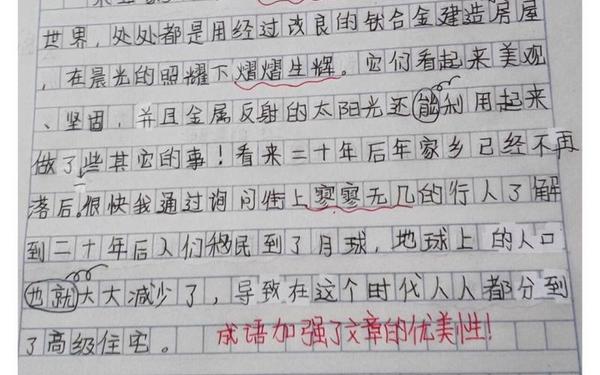 世界，处处都是用经过改良的钛合金建造房屋
，在晨光的照耀下熠熠生辉。它们看起来美观
、坚固，并且金属反射的太阳光还能利用起来
做了些其它的事！看来二十年后年家乡已经不再
落后。很快我通过询问街上寥寥无几的行人了解
到二十年后人们移民到了月球，地球上的人口
也就大大减少了，导致在这个时代人人都分到
了高级住宅。 成语加强了文章的优美性！